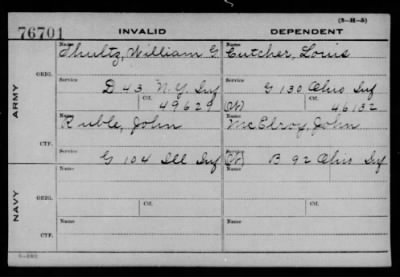 (3-H-5)
76701 INVALID DEPENDENT
Name Name
Shultz, William G Cutcher, Louis
ORIG. Service Service
D 43 N.Y. Inf G 130 Ohio Inf
Ctf. Ctf.
49629 46132
ARMY
Name Name
Ruble, John McElroy, John
CTF. Service Service
G 104 Ill Inf B 92 Ohio Inf
Name Name
ORIG. Service Service
Ctf. Ctf.
NAVY
Name Name
CTF.